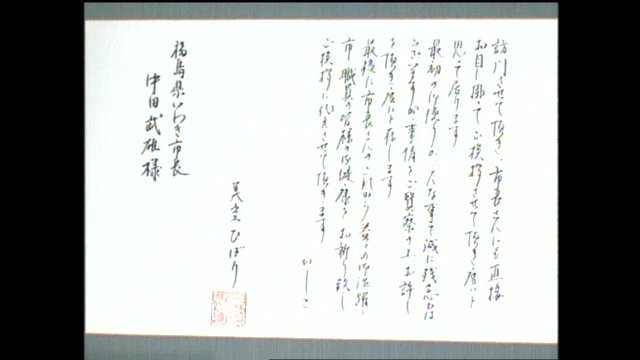 訪門させて頂き、市長さんにも直接
お目に掛ってご挨拶させて頂き度いと
思って居ります
最初のお便りが、こんな事で誠に残念では
ございますが、事情をご賢察の上お許し
を頂き度いと存じます
最後に市長さんのこれから益々の御活躍と
市職員の皆様の御健康をお祈り致し
ご挨拶に代えさせて頂きます
かしこ
美空ひばり
福島県いわき市長
中田武雄様